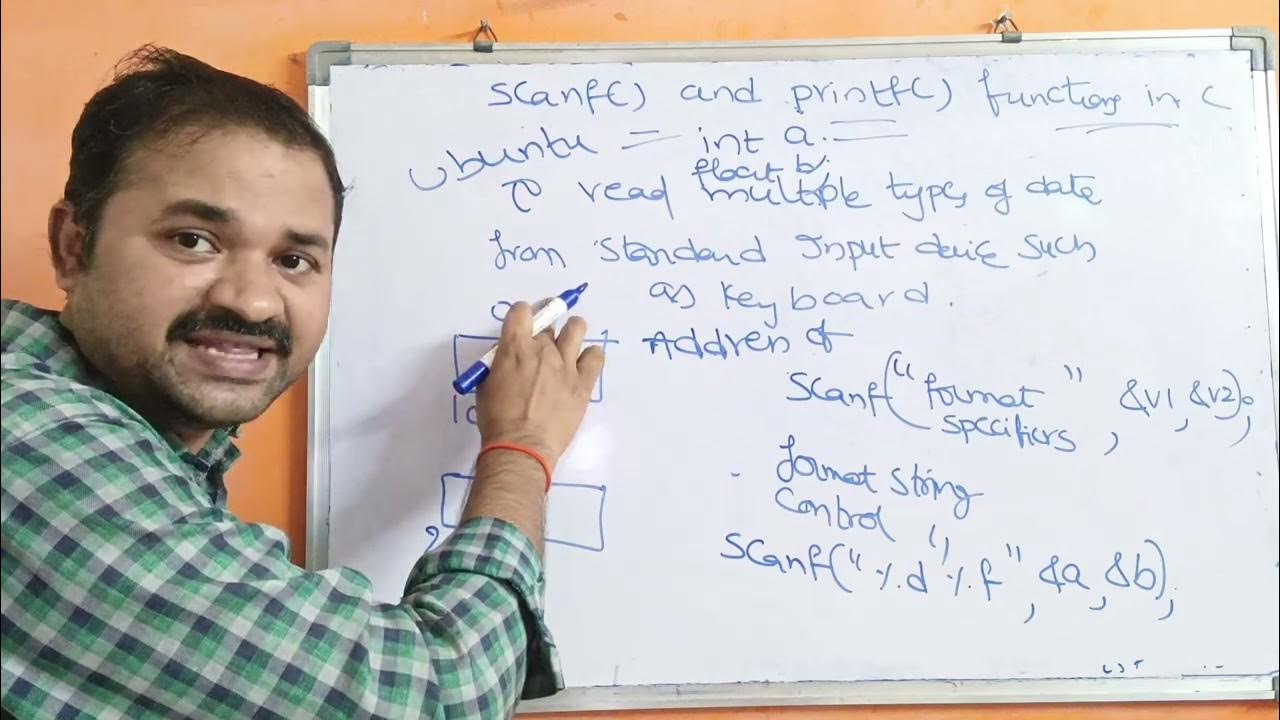 scanf() and printf() functions in C
Ubuntu = int a.
float b;
read multiple types of date
from standard Input device such
as keyboard.
Address of
scanf(" format " &v1, &v2);
specifiers ,
format string
control "
scanf("%d %f", &a, &b);